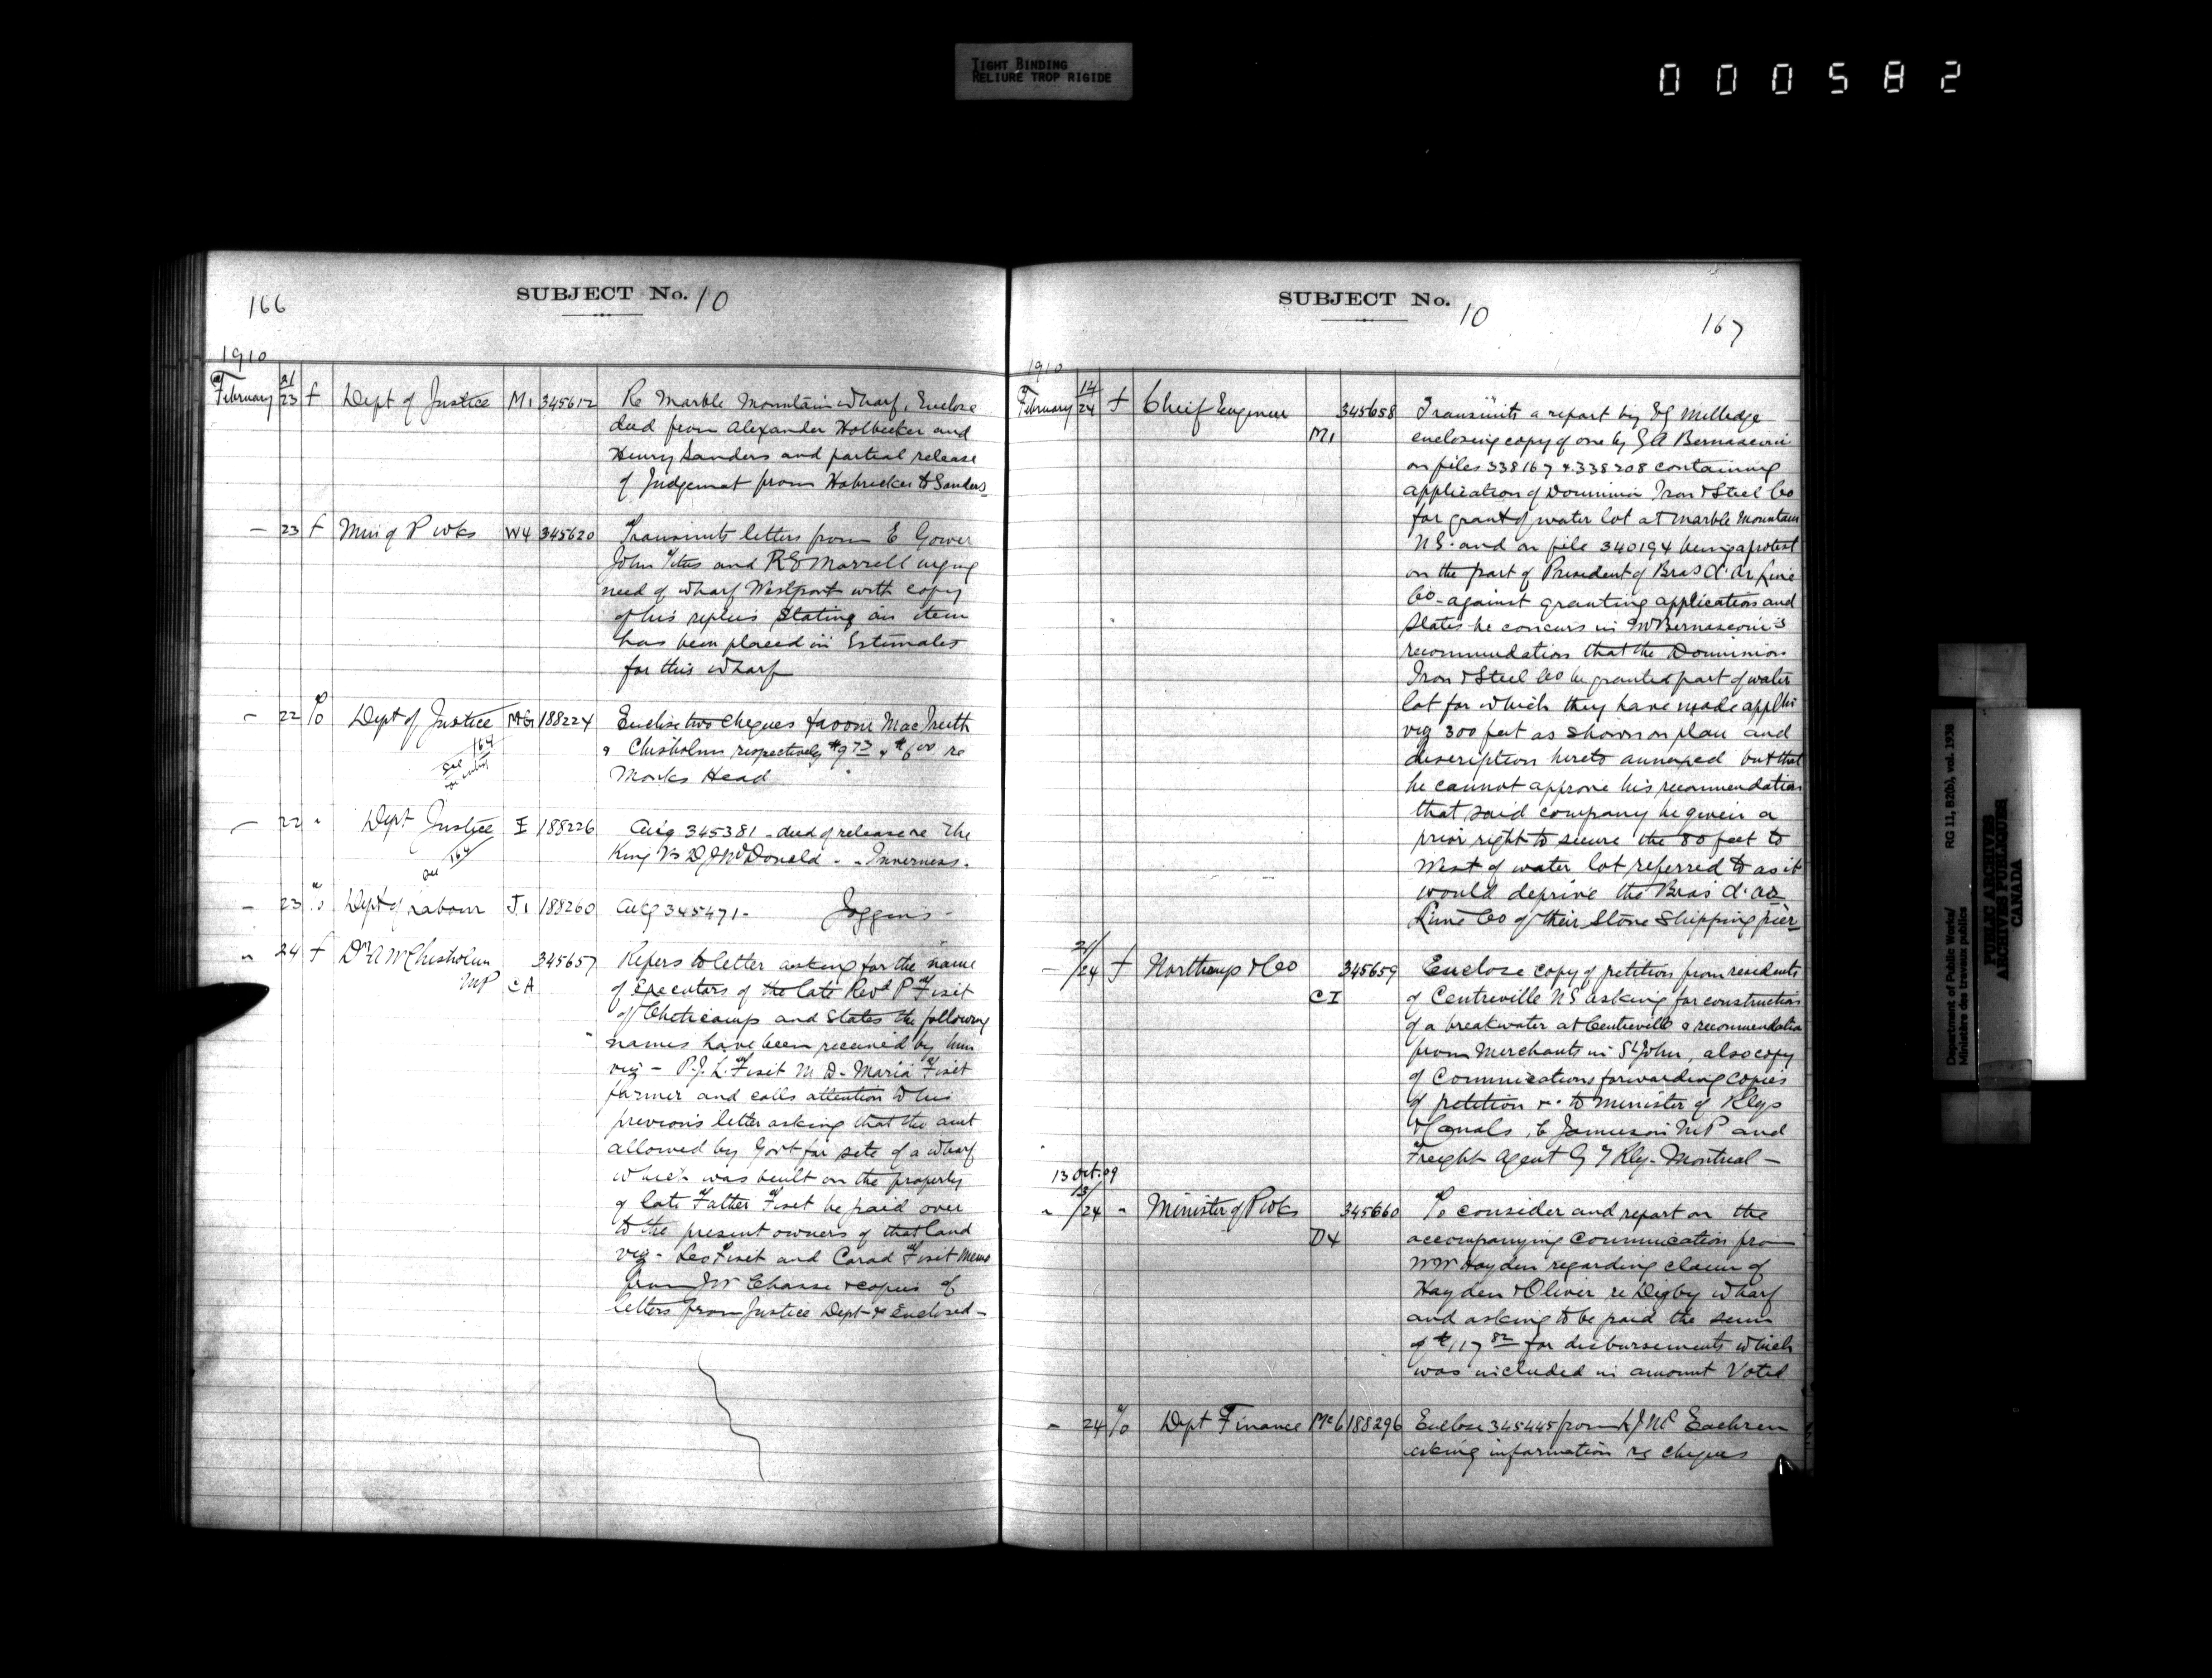 TIGHT BINDING
RELIURE TROP RIGIDE
000582
166
SUBJECT No. 10
1910
February 21/23 f Dept of Justice M1 345612 Re Marble Mountain Wharf, Enclose
deed from Alexander Holbecker and
Henry Sanders and partial release
of Judgemet from Hobrecker to Sanders
— 23 f Min of P Wks W4 345620 Transmits letters from E Gower
John Titus and R E Morrell urging
need of wharf Westport with copy
of his replies stating an item
has been placed in Estimates
for this wharf
— 22 To Dept of Justice McG 188224 Enclose two cheques favour Mac
& Chisholm respectively $9 73 & $6 00 re
Monks Head
See 164
— 22 " Dept Justice I 188226 Ackg 345381 - deed of release re The
King vs D J McDonald - - Inverness -
See 164
— 23 To Dept of Labour J1 188260 Ackg 345471 - Joggins -
" 24 f Dr A W Chisholm 345657 Refers to letter asking for the name
MP CA of Executors of the late Revd P Fiset
of Cheticamp and states the following
names have been received by him
viz - P. J. L. Fiset M D - Maria Fiset
farmer and calls attention to his
previous letter asking that the amt
allowed by Govt for site of a wharf
which was built on the property
of late Father Fiset be paid over
to the present owners of that land
viz - Leo Fiset and Fiset Memo
from J W Chasse & copies of
letters from Justice Dept re Enclosed -
SUBJECT No. 10
167
1910
February 14/24 f Chief Engineer 345658 Transmits a report by E G Milledge
M1 enclosing copy of one by G A Bernasconi
on files 338167 & 338208 containing
application of Dominion Iron & Steel Co
for grant of water lot at Marble Mountain
NS. and on file 340194 being a protest
on the part of President of Bras d'Or Lime
Co - against granting application and
states he concurs in Mr Bernasconi's
recommendation that the Dominion
Iron & Steel Co be granted part of water
lot for which they have made
viz 300 feet as shown on plan and
description hereto annexed but that
he cannot approve his recommendation
that said company be given a
prior right to secure the 80 feet to
West of water lot referred to as it
would deprive the Bras d'Or
Lime Co of their Stone Shipping pier
— 21/24 f Northrup & Co 345659 Enclose copy of petition from residents
CI of Centreville NS asking for construction
of a breakwater at Centreville & recommendation
from Merchants in St John, also copy
of Communications forwarding copies
of petition &c to Minister of Rlys
& Canals, C Jameson MP and
Freight Agent G T Rly - Montreal -
13 Oct. 09
" 13/24 " Minister of P Wks 345660 To consider and report on the
D4 accompanying communication from
W W Hayden regarding claim of
Hayden & Oliver re Digby wharf
and asking to be paid the sum
of $117 82 for disbursements which
was included in amount Voted
— 24 To Dept Finance Mc6 188296 Enclose 345445 from L J McEachren
asking information re cheques
Department of Public Works/
Ministère des travaux publics
RG 11, B2(b), vol. 1938
PUBLIC ARCHIVES
ARCHIVES PUBLIQUES
CANADA